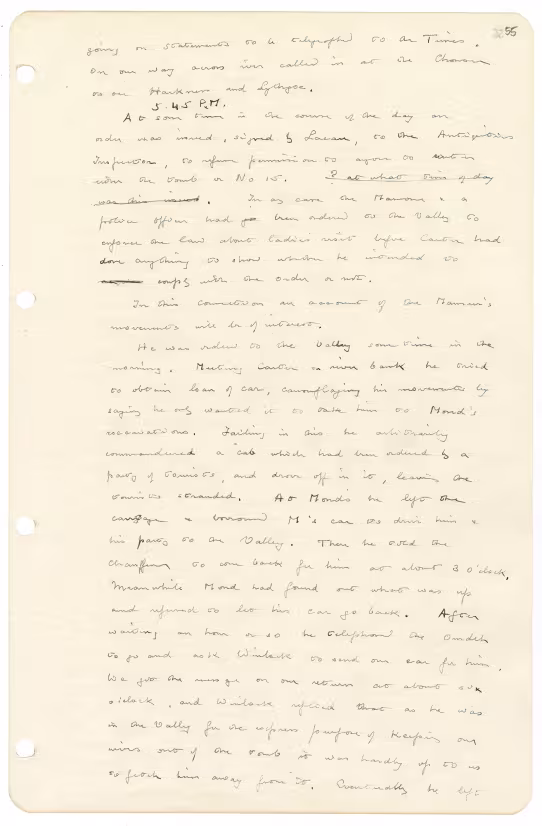 55
going on statements to be telegraphed to the Times.
On our way across river called in at the Chasm
to see Harkness and Lythgoe.
5.45 P.M.
At some time in the course of the day an
order was issued, signed by Lacau, to the Antiquities
Inspector, to refuse permission to anyone to enter
either the tomb or No 15. ? at what time of day
was this issued. In any case the Mamour & a
police officer had been ordered to the Valley to
enforce the law about ladies visit before Carter had
done anything to show whether he intended to
comply with the order or not.
In this connection an account of the Mamur's
movements will be of interest.
He was ordered to the Valley some time in the
morning. Meeting Carter on river bank he tried
to obtain loan of car, camouflaging his movements by
saying he only wanted it to take him to Mond's
excavations. Failing in this he arbitrarily
commandeered a cab which had been ordered by a
party of tourists, and drove off in it, leaving the
tourists stranded. At Mond's he left the
carriage & borrowed M's car to drive him &
his party to the Valley. Then he told the
chauffeur to come back for him at about 3 o'clock.
Meanwhile Mond had found out what was up
and refused to let his car go back. After
waiting an hour or so he telephoned the Omdeh
to go and ask Winlock to send our car for him.
We got the message on our return at about six
o'clock, and Winlock replied that as he was
in the Valley for the express purpose of keeping our
wives out of the tomb it was hardly up to us
to fetch him away from it. Eventually he left